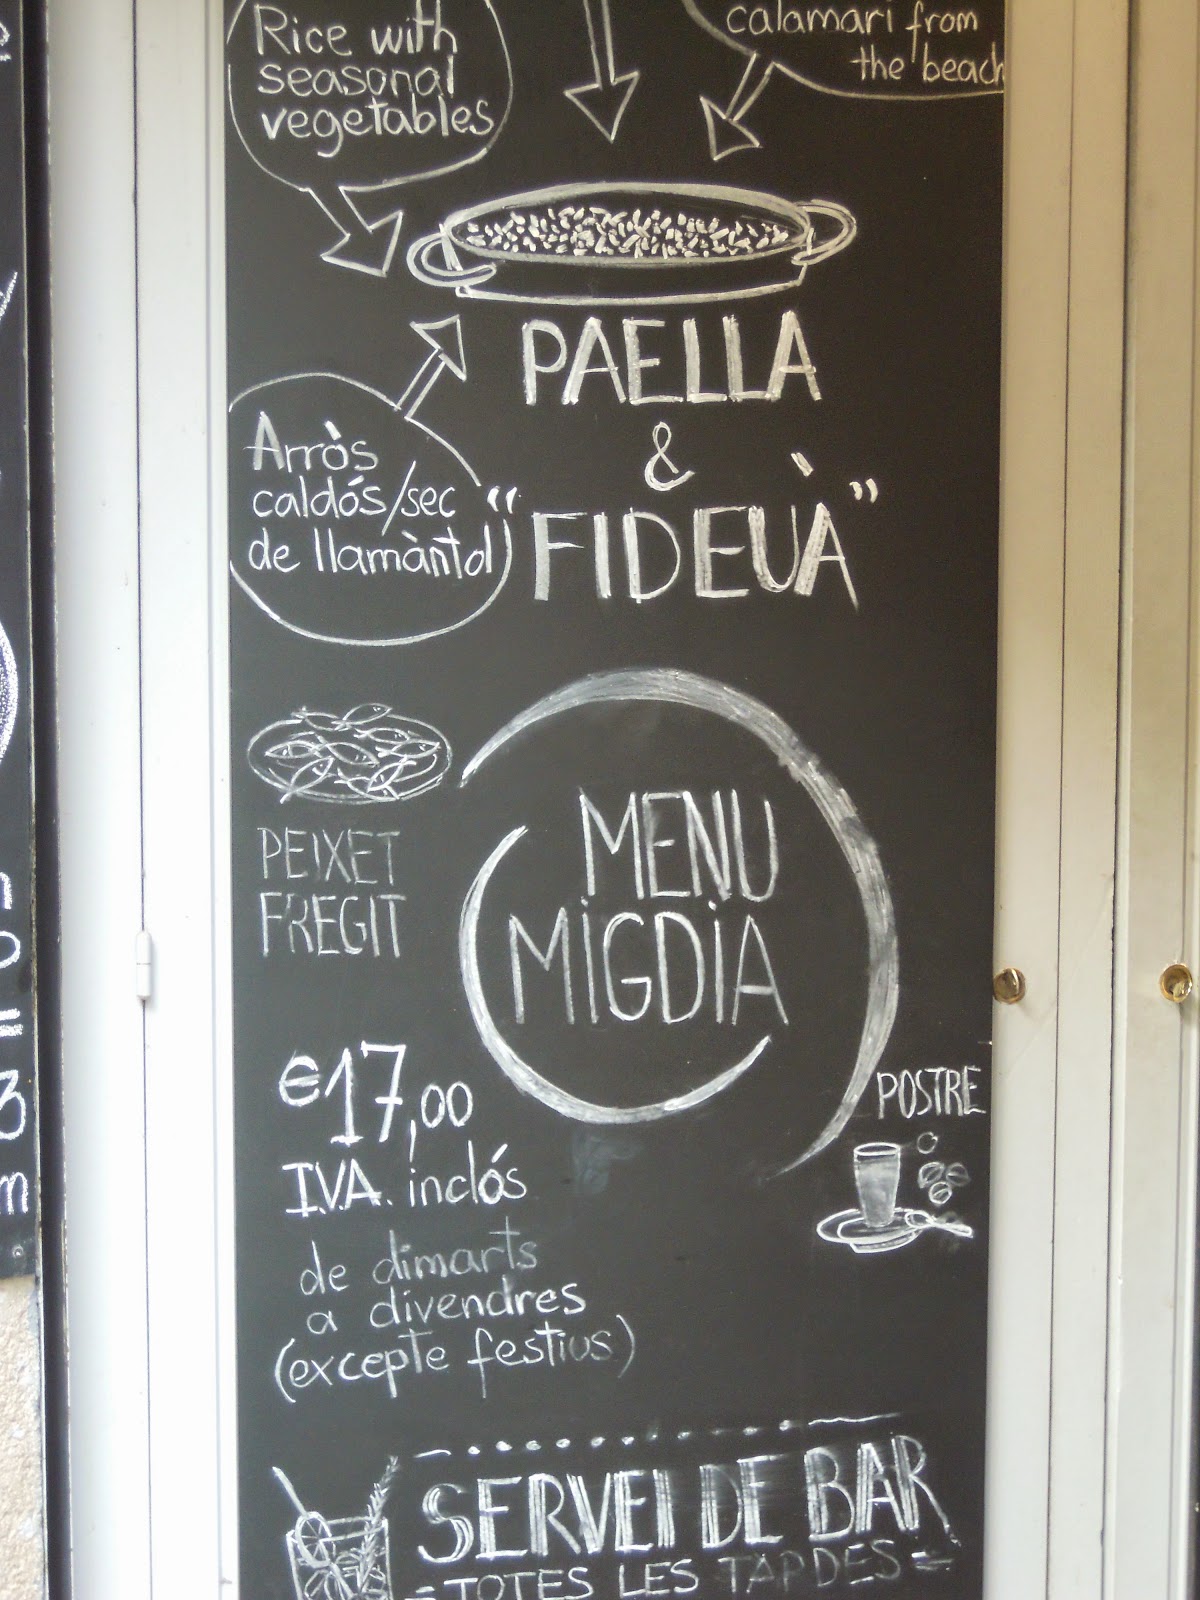 Rice with
seasonal
vegetables
calamari from
the beach
PAELLA
&
"FIDEUÀ"
Arròs
caldós/sec
de llamàntol
PEIXET
FREGIT
MENU
MiGDiA
€17,00
I.V.A. inclós
de dimarts
a divendres
(excepte festius)
POSTRE
SERVEI DE BAR
- TOTES LES TARDES -